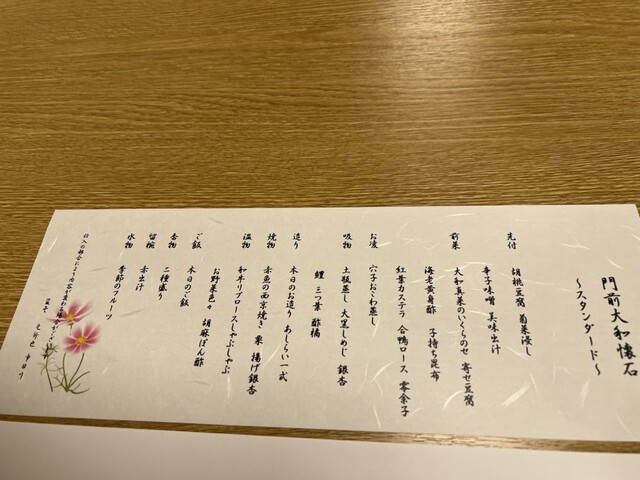 門前大和懐石
～スタンダード～
先付
胡桃豆腐 菊菜浸し
辛子味噌 美味出汁
前菜
大和真菜のいくらのせ 寄せ豆腐
海老黄身酢 子持ち昆布
紅葉カステラ 合鴨ロース 零余子
お凌
穴子おこわ蒸し
吸物
土瓶蒸し 大黒しめじ 銀杏
鱧 三つ葉 酢橘
造り
本日のお造り あしらい一式
焼物
赤魚の西京焼き 栗 揚げ銀杏
温物
和牛リブロースしゃぶしゃぶ
お野菜色々 胡麻ぽん酢
ご飯
本日のご飯
香物
二種盛り
留椀
赤出汁
水物
季節のフルーツ
仕入の都合により内容が変わる場合が